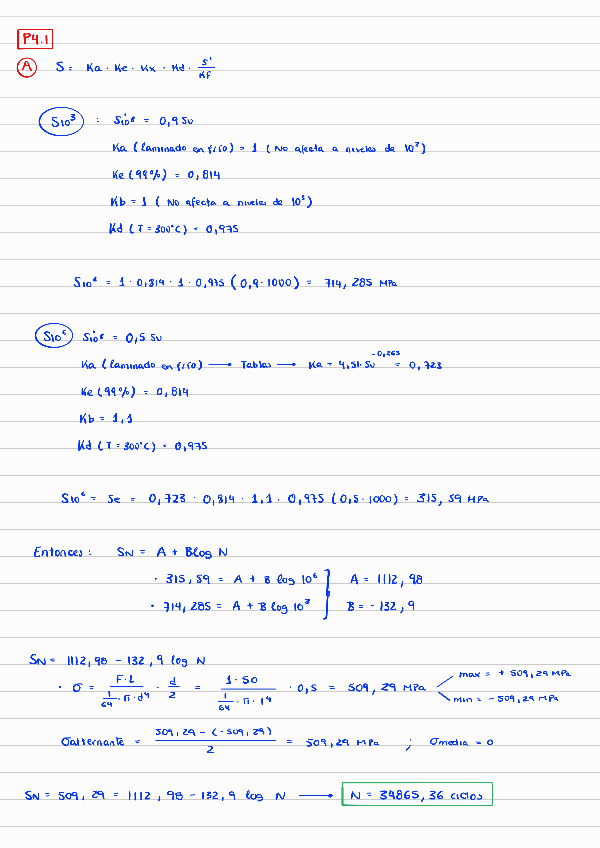 P4.1
A S = Ka · Ke · Kx · Kd · S'/Kf
S10³ : S'10³ = 0,9 Su
Ka (laminado en frío) = 1 (No afecta a niveles de 10³)
Ke (99%) = 0,814
Kb = 1 (No afecta a niveles de 10³)
Kd (T = 300°C) = 0,975
S10⁶ = 1 · 0,814 · 1 · 0,975 (0,9 · 1000) = 714,285 MPa
S10⁶ S'10⁶ = 0,5 Su
Ka (laminado en frío) → Tablas → Ka = 4,51 · Su^-0,265 = 0,723
Ke (99%) = 0,814
Kb = 1,1
Kd (T = 300°C) = 0,975
S10⁶ = Se = 0,723 · 0,814 · 1,1 · 0,975 (0,5 · 1000) = 315,59 MPa
Entonces: SN = A + B log N
· 315,59 = A + B log 10⁶ A = 1112,98
· 714,285 = A + B log 10³ B = -132,9
SN = 1112,98 - 132,9 log N
· σ = F·L / (1/64 · π · d⁴) · d/2 = 1·50 / (1/64 · π · 1⁴) · 0,5 = 509,29 MPa
max = + 509,29 MPa
min = - 509,29 MPa
σalternante = (509,29 - (-509,29)) / 2 = 509,29 MPa ; σmedia = 0
SN = 509,29 = 1112,98 - 132,9 log N → N = 34865,36 ciclos